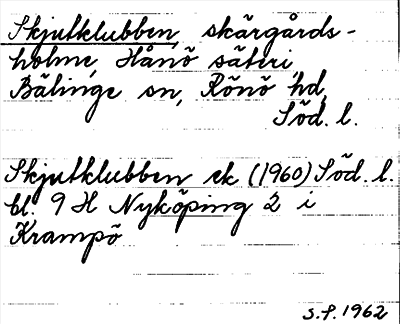 Skjutklubben, skärgårds-
holme, Hånö säteri,
Bälinge sn, Rönö hd,
Söd. l.
Skjutklubben ek (1960) Söd. l.
bl. 9 H Nyköping 2 i
Krampö
S.F. 1962